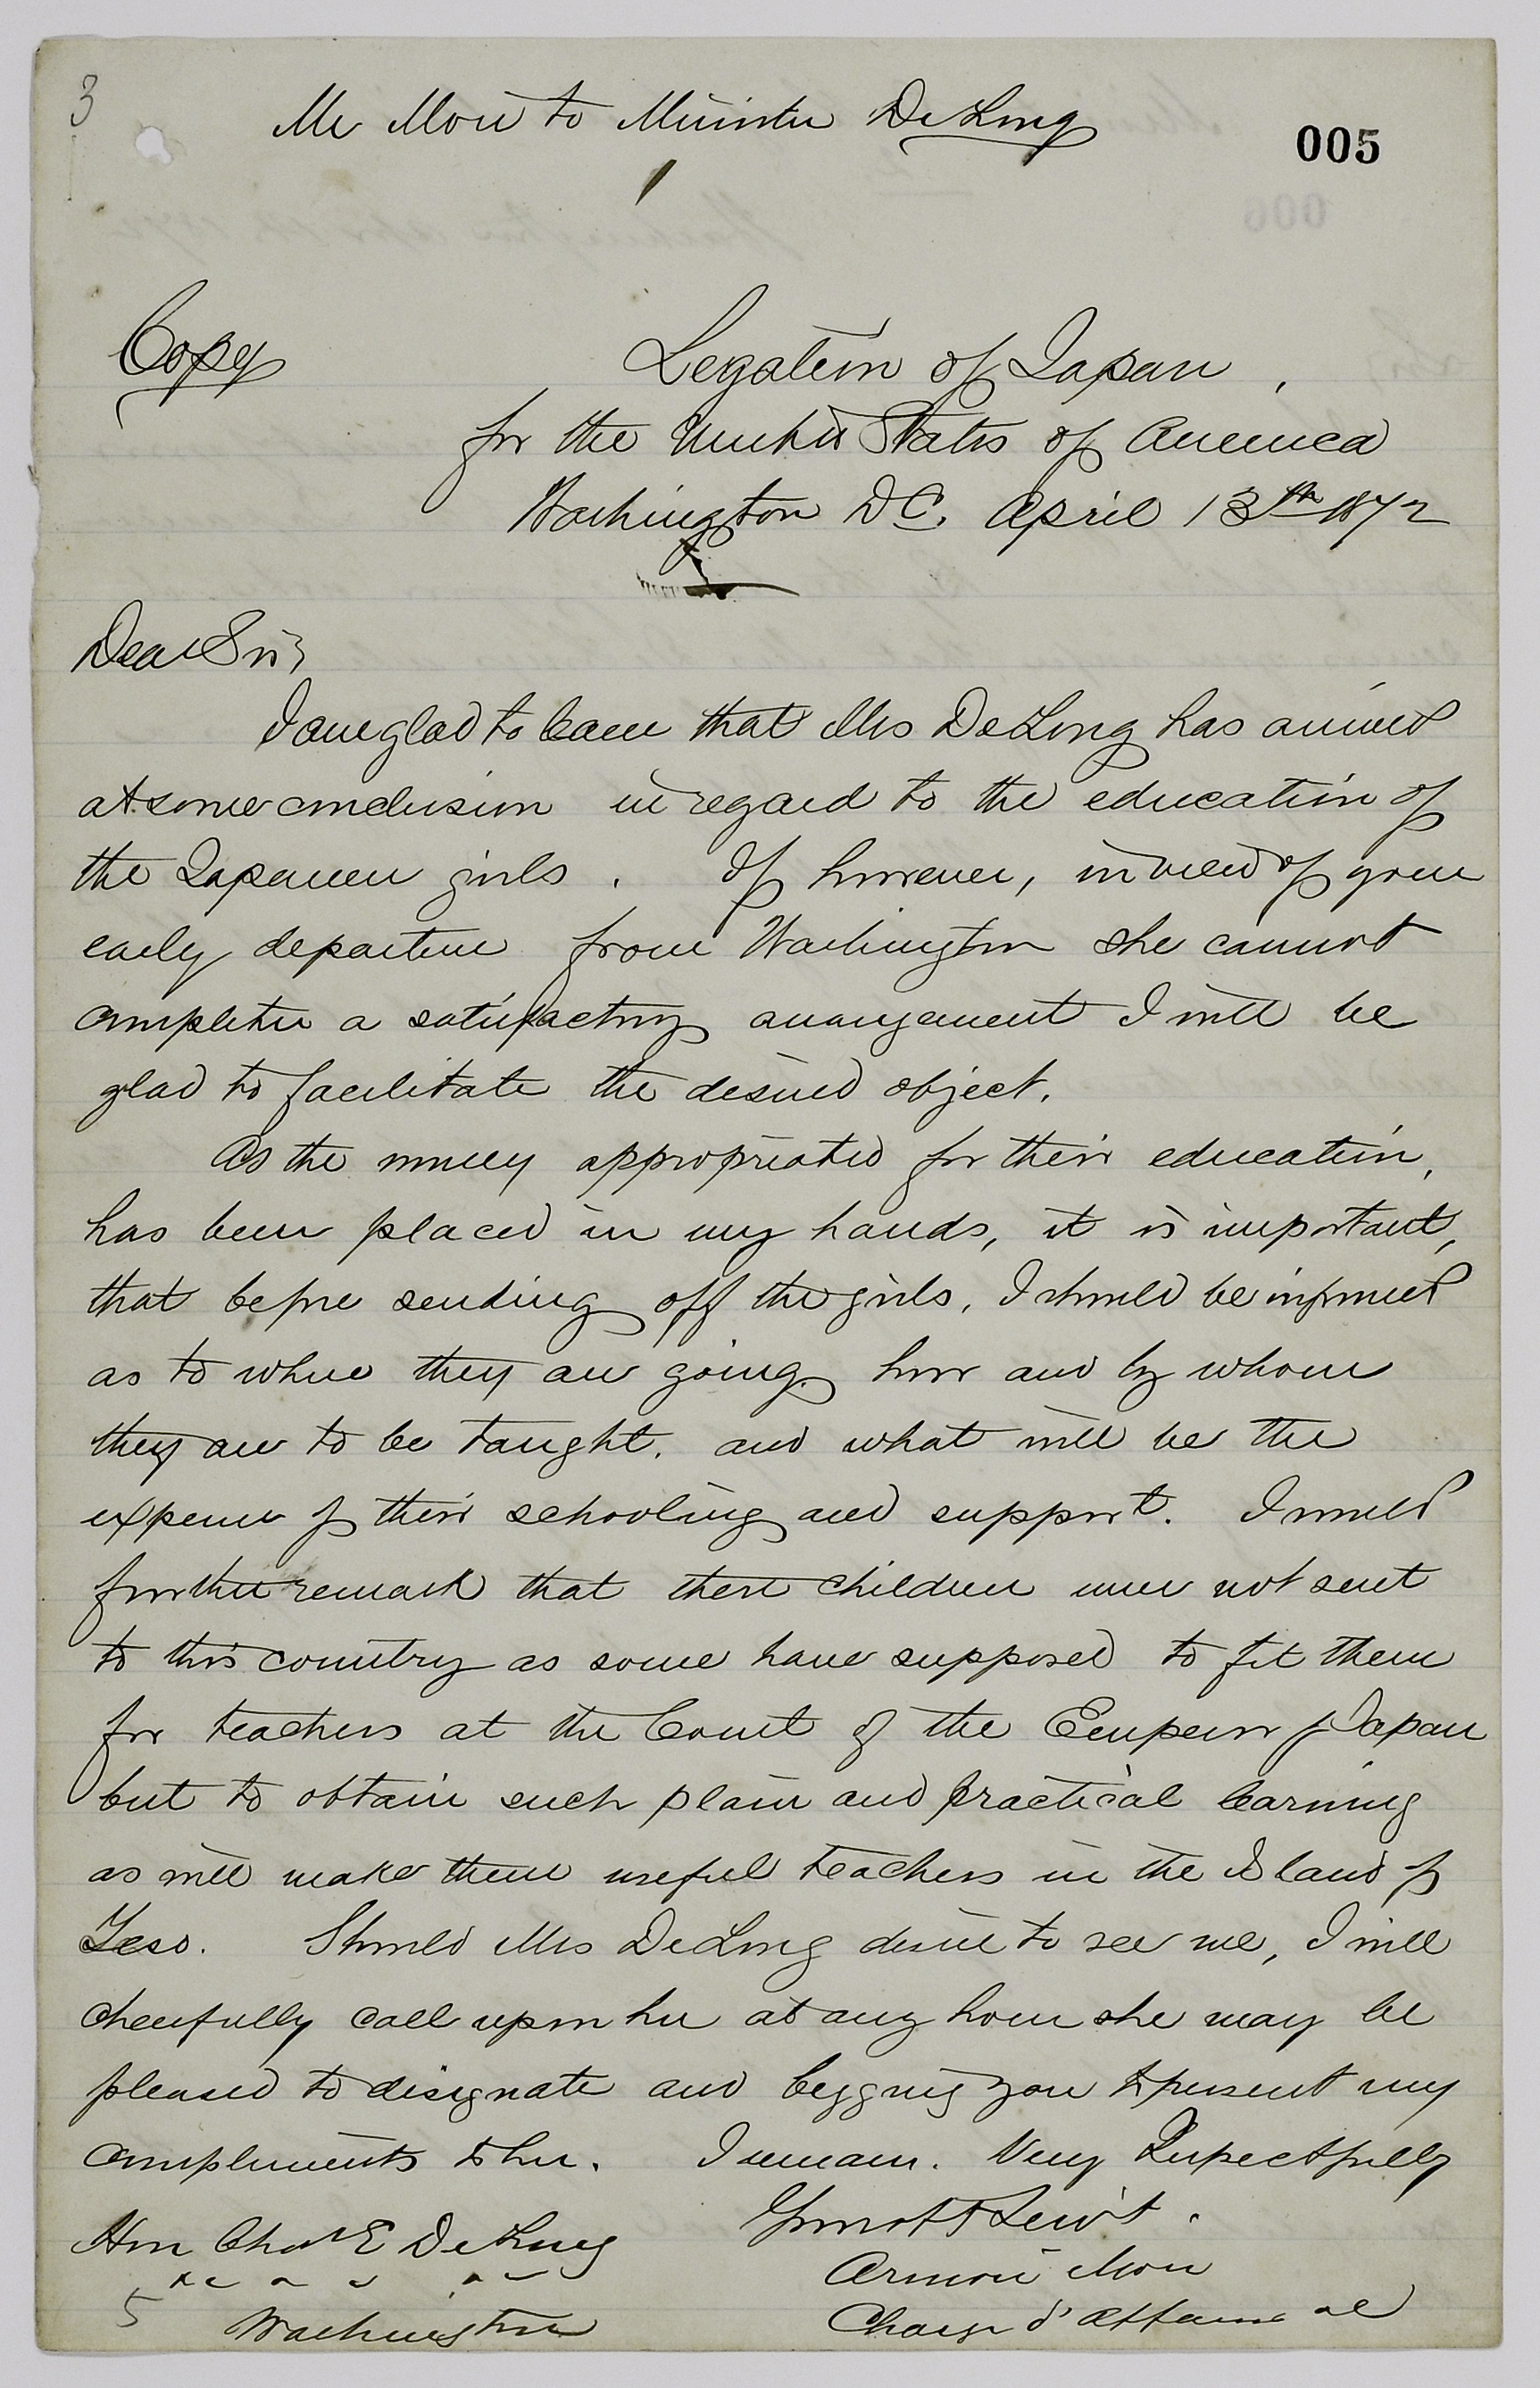 3
Mr Mori to Minister DeLong
005
Copy
Legation of Japan,
for the United States of America
Washington DC. April 13th 1872
Dear Sir,
I am glad to learn that Mrs DeLong has arrived
at some conclusion in regard to the education of
the Japanese girls. If however, in view of your
early departure from Washington she cannot
complete a satisfactory arrangement I will be
glad to facilitate the desired object.
As the money appropriated for their education,
has been placed in my hands, it is important,
that before sending off the girls, I should be informed
as to where they are going, how and by whom
they are to be taught, and what will be the
expense of their schooling and support. I would
further remark that these children were not sent
to this country as some have supposed to fit them
for teachers at the Court of the Emperor of Japan
but to obtain such plain and practical learning
as will make them useful teachers in the Island of
Yeso. Should Mrs DeLong desire to see me, I will
cheerfully call upon her at any hour she may be
pleased to designate and begging you to present my
compliments to her. I remain. Very Respectfully
Your obt Servt.
Hon Chas E DeLong
Arinori Mori
5 Washington
Charge d'Affaires